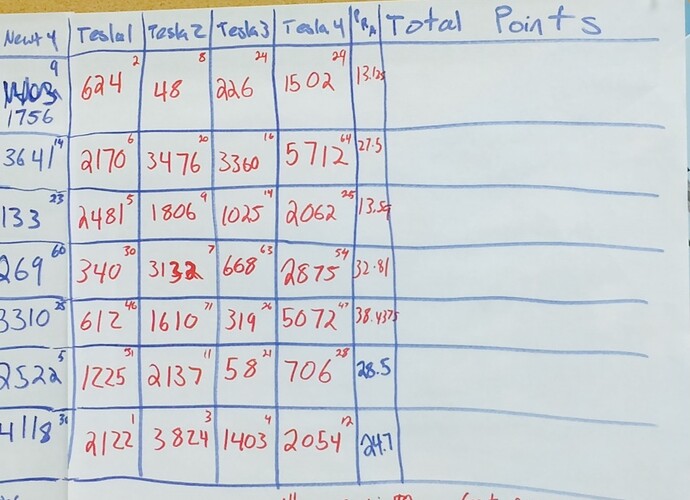 Newt 4 Tesla1 Tesla 2 Tesla 3 Tesla 4 Total Points
9 2 8 24 29
624 48 226 1502 13.125
1756
3641 14 2170 6 3476 20 3360 16 5712 64 27.5
133 23 2481 5 1806 9 1025 14 2062 25
269 60 340 30 3132 7 668 63 2875 54 32.81
3310 25 612 46 1610 71 319 26 5072 47 38.4375
2522 5 1225 31 2137 11 58 21 706 28 28.5
4118 2122 1 3824 3 1403 4 2054 12 24.7